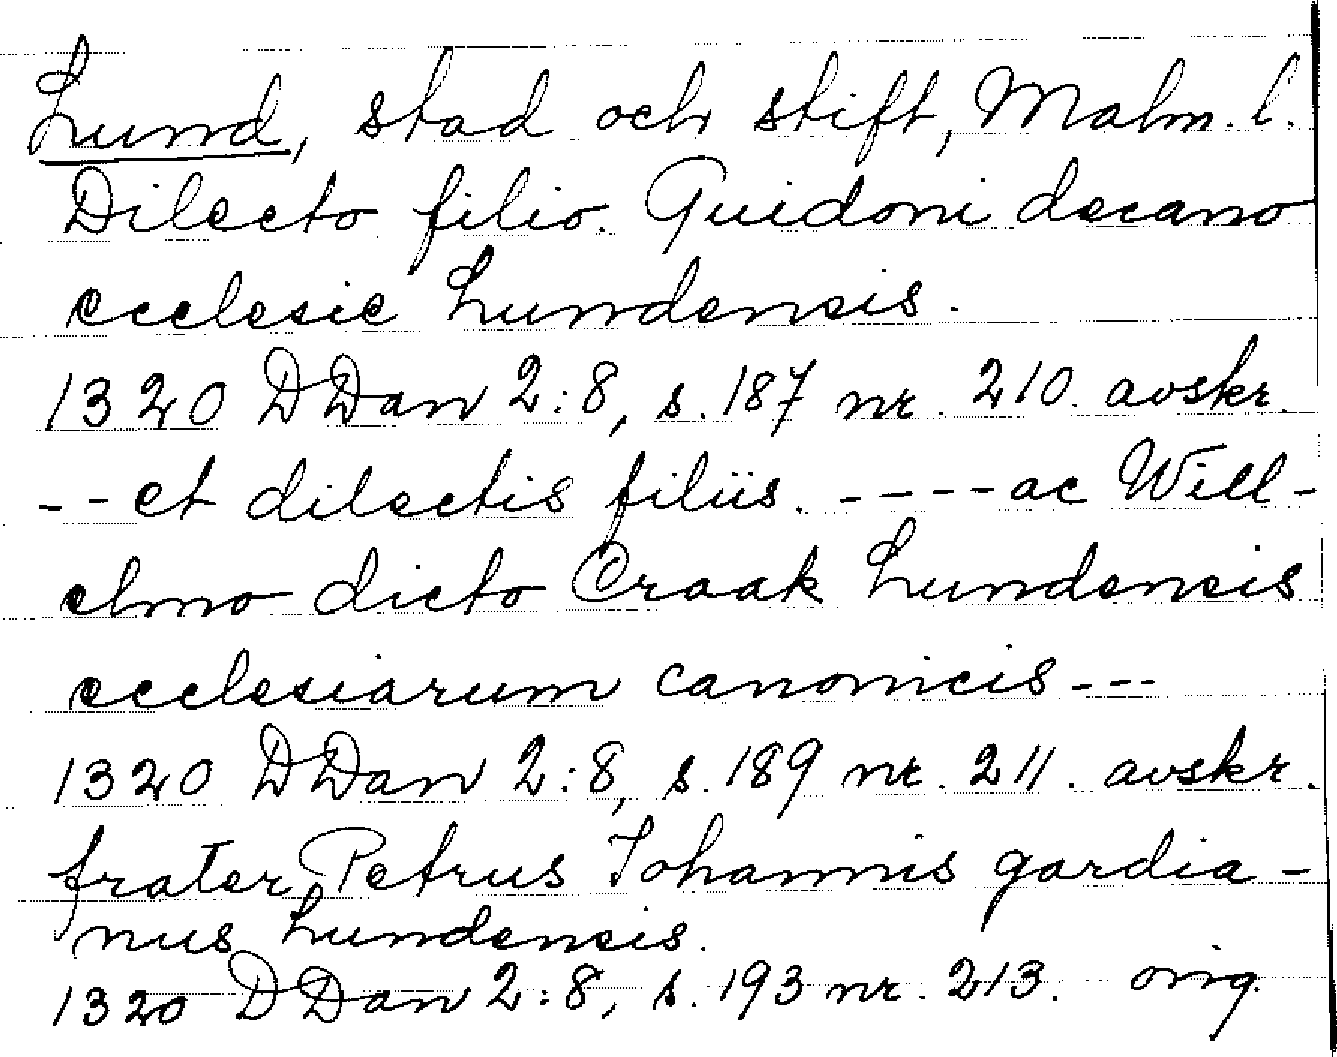 Lund, stad och stift, Malm. l.
Dilecto filio. Guidoni decano
ecclesie Lundensis.
1320 DDan 2:8, s. 187 nr. 210. avskr.
-- et dilectis filiis. ---- ac Will-
elmo dicto Craak Lundensis
ecclesiarum canonicis ---
1320 DDan 2:8, s. 189 nr. 211. avskr.
frater Petrus Iohannis gardia-
nus Lundensis.
1320 DDan 2:8, s. 193 nr. 213. orig.